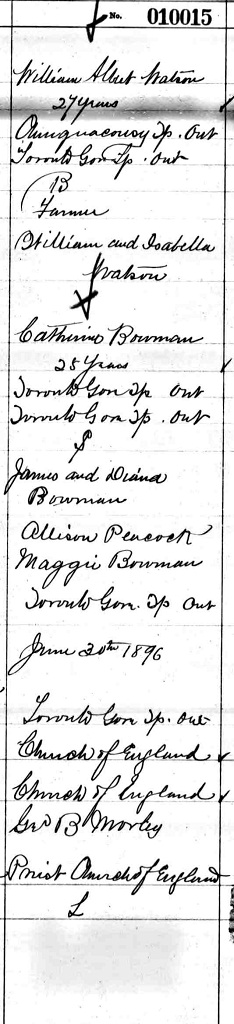 No. 010015
William Albert Watson
27 years
Chinguacousy Tp. Ont
Toronto Gore Tp. Ont
B
Farmer
William and Isabella
Watson
Catherine Bowman
25 Years
Toronto Gore Tp Ont
Toronto Gore Tp. Ont
S
James and Diana
Bowman
Allison Peacock
Maggie Bowman
Toronto Gore. Tp Ont
June 30th 1896
Toronto Gore Tp. Ont
Church of England
Church of England
Geo B Morley
Priest Church of England
L